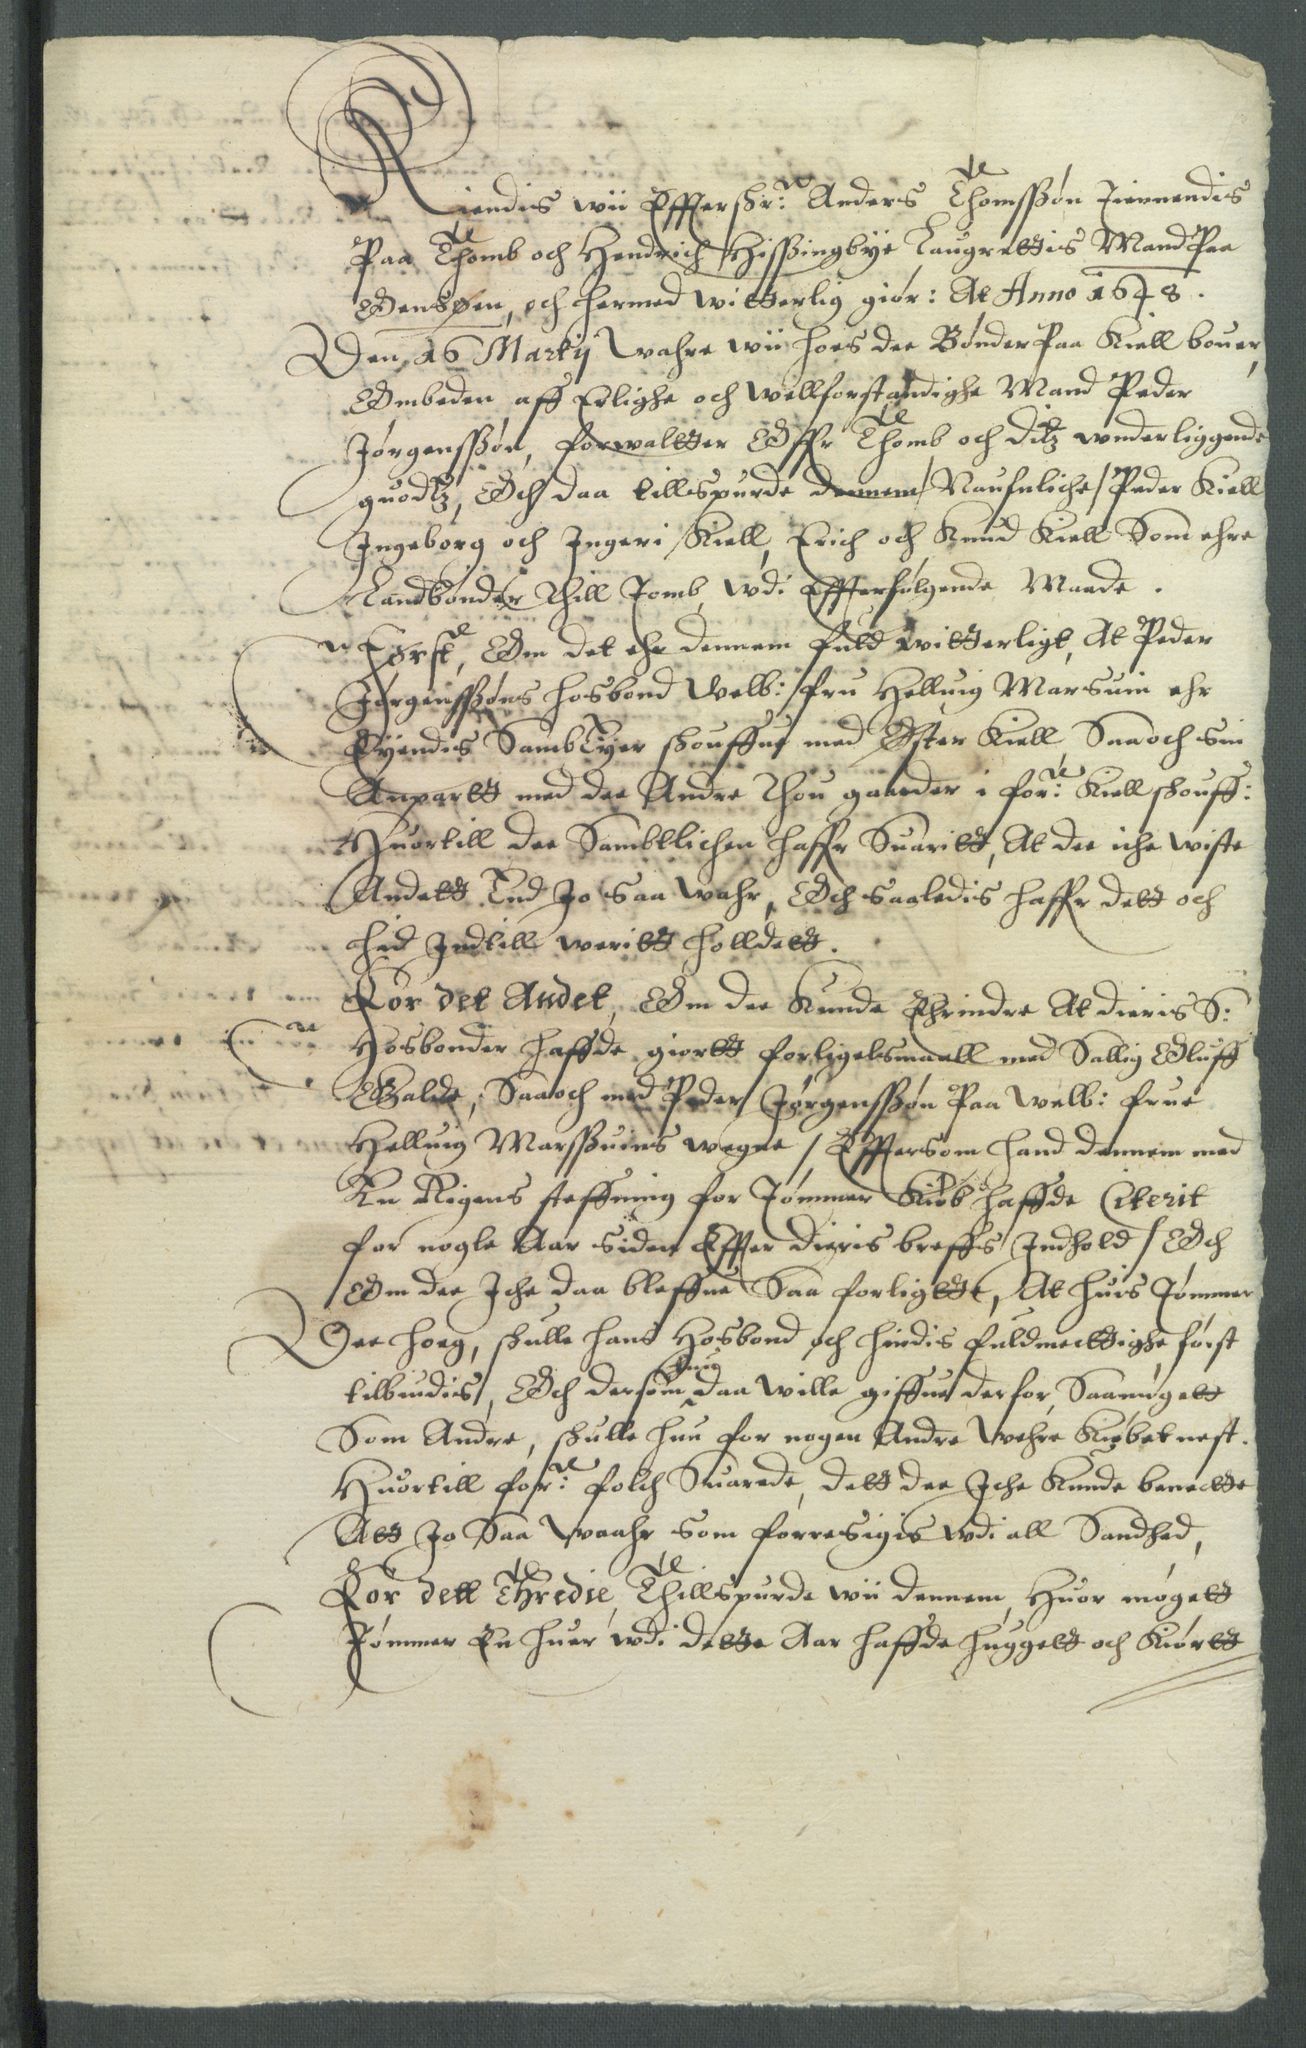 Kiendis wii Effterskr: Anders Thomssøn Jiennendis
Paa Thomb och Hendrich Hissingbÿe Laugrettis Mand Paa
Ødensøen, och hermed witterlig giør: At Anno 1648.
Den 16 Martij wahre wii hoes dee Bønder Paa Kiell bouer,
Ombeden aff Erlighe och wellforstandighe Mand Peder
Jørgenssøn, forwaltter Offr Thomb och ditz wnderliggende
guodtz, Och daa tillspurde dennem / Naufnliche / Peder Kiell
Ingeborg och Ingeri Kiell, Erich och Knud Kiell Som ehre
Landbønder Thill Tomb, wdi Effterfølgende Maade.
Først, Om det ehr dennem fuld witterligt, At Peder
Jørgenssøns hosbond Welb: fru Helluig Marsuin ehr
Eÿendis Sambtÿer skouffue med Øster Kiell Saa och sin
Anpartt med dee Andre Thou gaarder i for: Kiell skouff:
Huortill dee Sambtlichen haffr Suaritt, At dee iche wiste
Andett End Jo saa wahr, Och saaledis haffr dett och
hid Indtill weritt holldett.
For det Andet, Om dee Kunde Ehrindre At dieris S:
Hosbonder haffde giortt forligelsmaall med Sallig Oluff
Galde, Saa och med Peder Jørgenssøn Paa welb: frue
Helluig Marssuins wegne / Efftersom hand dennem med
En Rigens steffning for Tømmer Kiøb haffde Citerit
for nogle Aar siden Effter dieris breffs Indhold / Och
Om dee Iche daa bleffue Saa forligtte, At huis Tømmer
Dee hoeg, skulle hans Hosbond och hindis fuldmecttighe først
tilbiudis, Och dersom hun daa wille giffue derfor, Saamøgett
Som Andre, skulle hun for nogen Andre wehre Kiøbet nest.
Huortill for: folch Suarede, dett dee Iche Kunde benectte
Att Jo Saa waahr som forresigis wdi all Sandhed,
For dett Thredie, Thillspurde wii dennem, Huor møgett
Tømmer En huer wdi dette Aar haffde huggett och Kiørtt